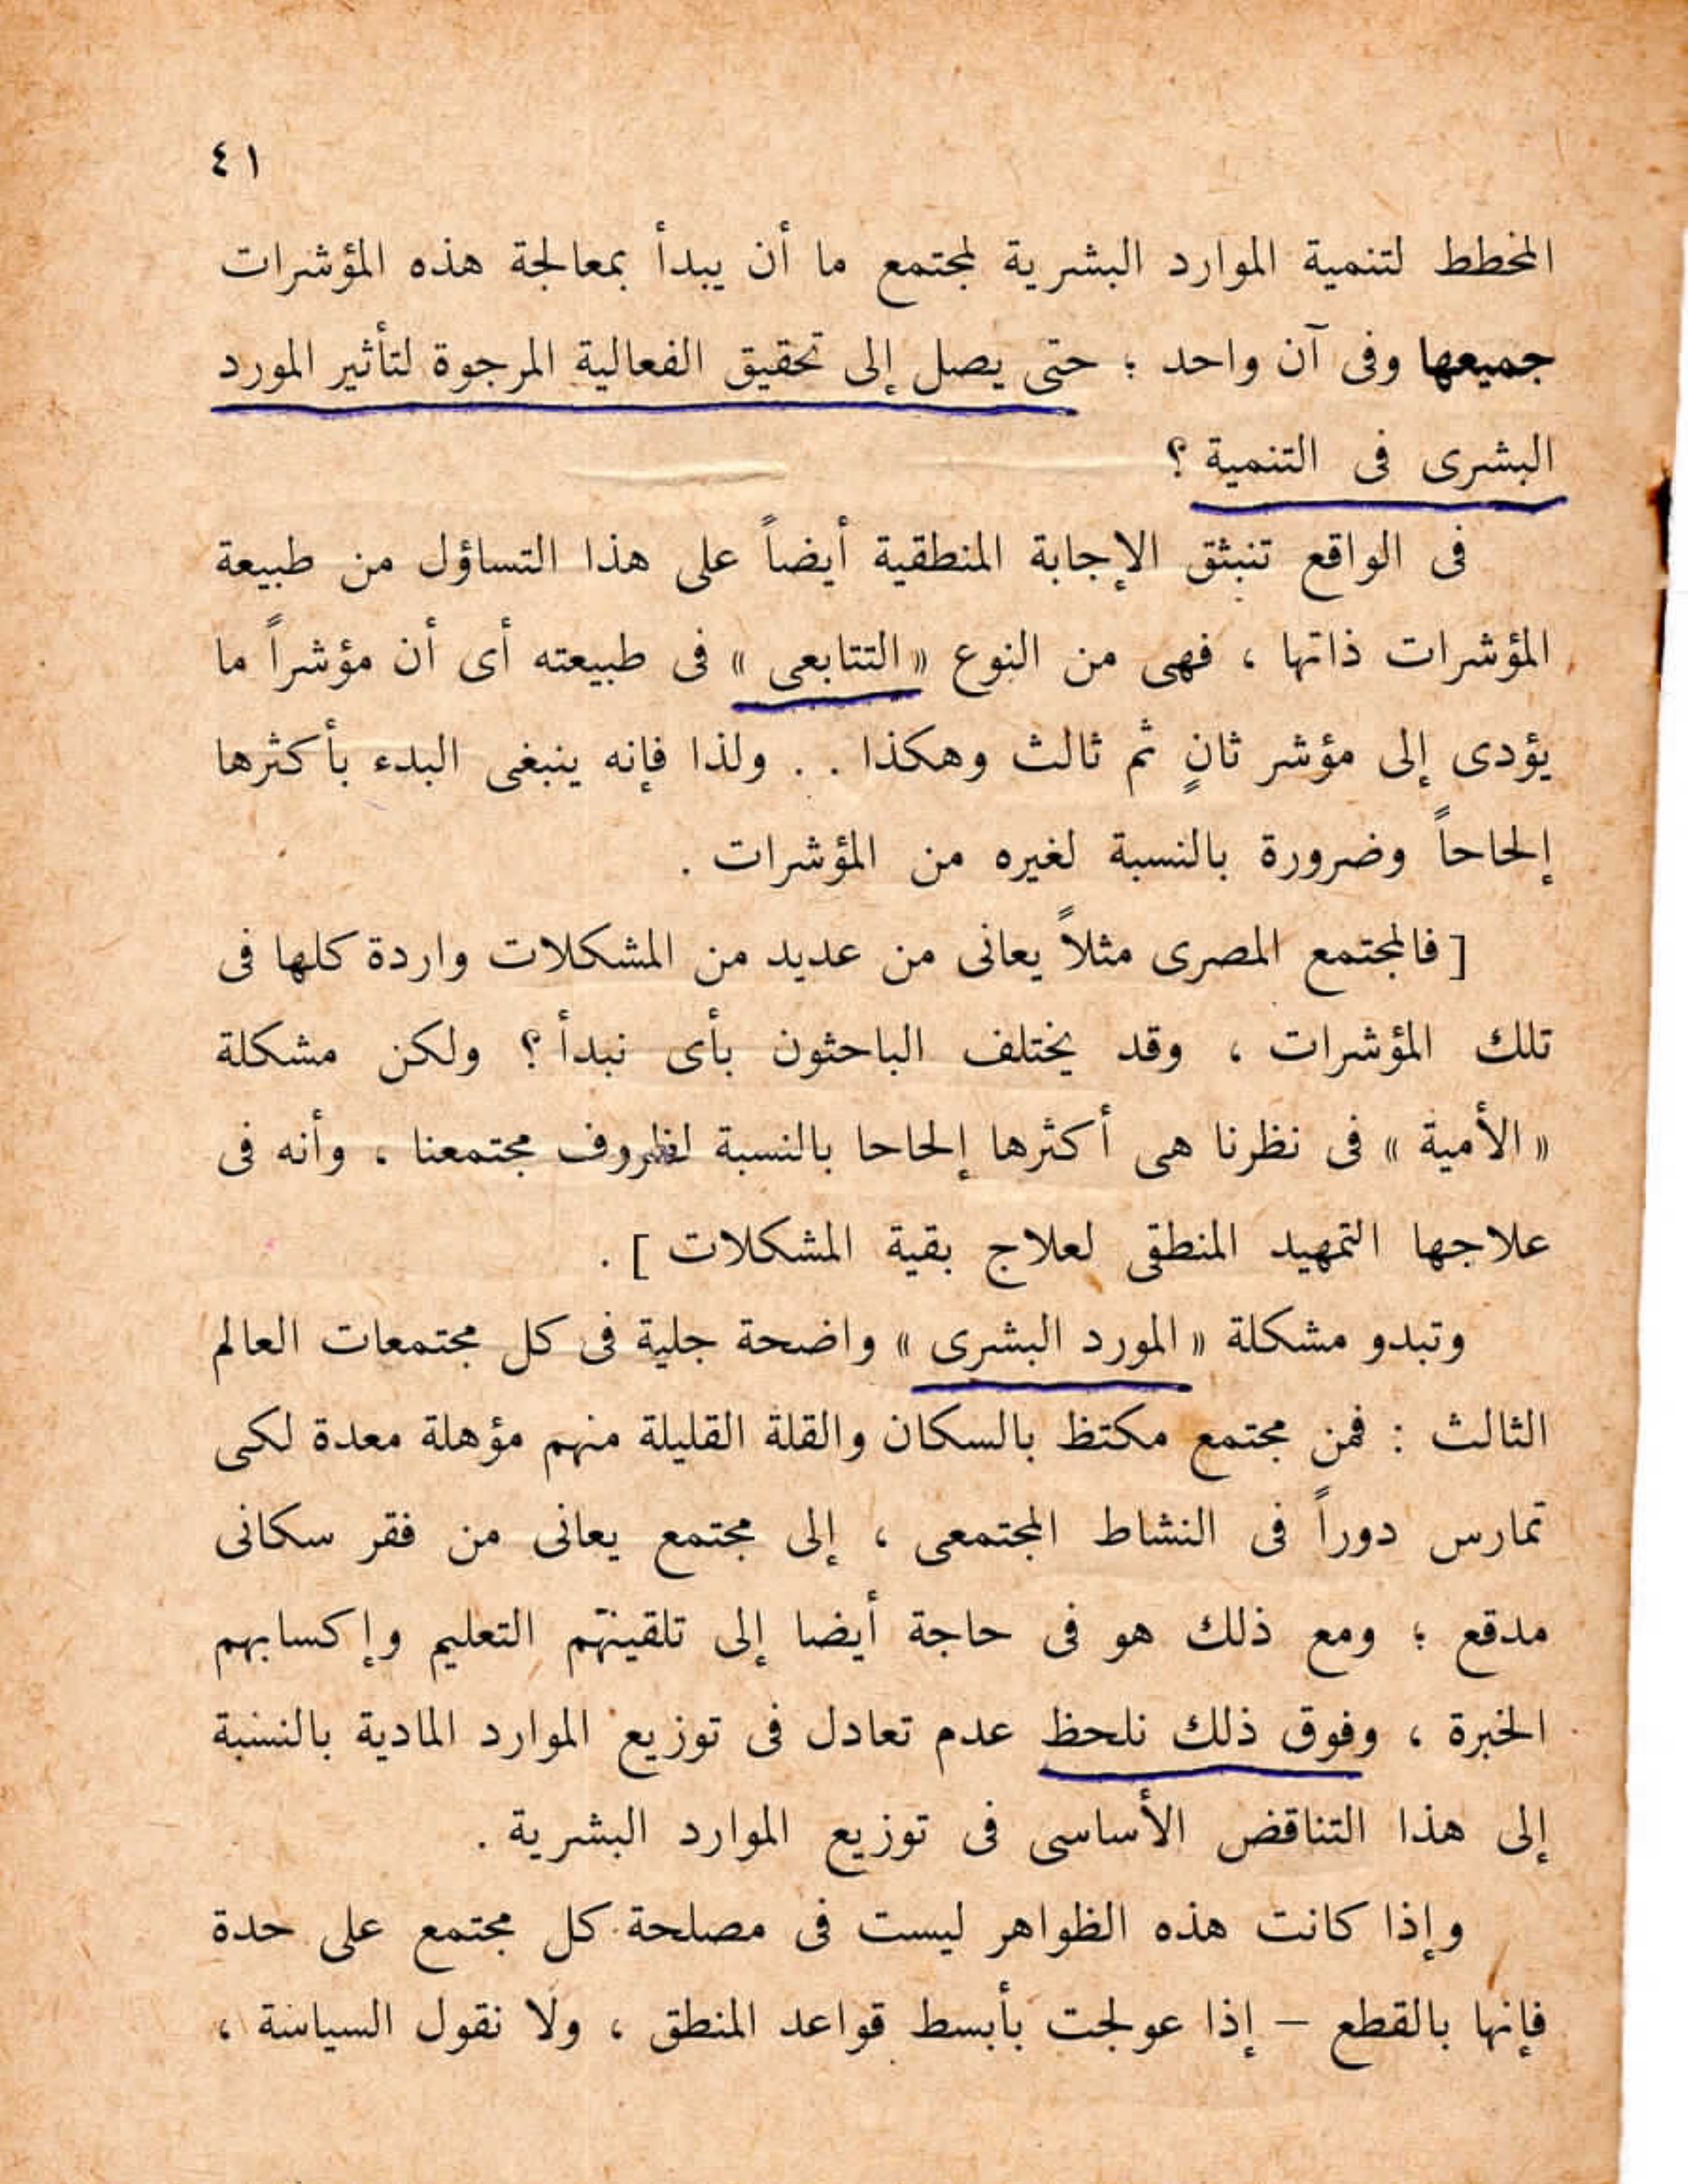 ٤١
المخطط لتنمية الموارد البشرية لمجتمع ما أن يبدأ بمعالجة هذه المؤشرات
جميعها وفى آن واحد ؛ حتى يصل إلى تحقيق الفعالية المرجوة لتأثير المورد
البشرى فى التنمية ؟
فى الواقع تنبثق الإجابة المنطقية أيضاً على هذا التساؤل من طبيعة
المؤشرات ذاتها ، فهى من النوع « التتابعى » فى طبيعته أى أن مؤشراً ما
يؤدى إلى مؤشر ثانٍ ثم ثالث وهكذا . . ولذا فإنه ينبغى البدء بأكثرها
إلحاحاً وضرورة بالنسبة لغيره من المؤشرات .
[ فالمجتمع المصرى مثلاً يعانى من عديد من المشكلات واردة كلها فى
تلك المؤشرات ، وقد يختلف الباحثون بأى نبدأ ؟ ولكن مشكلة
« الأمية » فى نظرنا هى أكثرها إلحاحا بالنسبة لظروف مجتمعنا ، وأنه فى
علاجها التمهيد المنطقى لعلاج بقية المشكلات ] .
وتبدو مشكلة « المورد البشرى » واضحة جلية فى كل مجتمعات العالم
الثالث : فمن مجتمع مكتظ بالسكان والقلة القليلة منهم مؤهلة معدة لكى
تمارس دوراً فى النشاط المجتمعى ، إلى مجتمع يعانى من فقر سكانى
مدقع ؛ ومع ذلك هو فى حاجة أيضا إلى تلقينهم التعليم وإكسابهم
الخبرة ، وفوق ذلك نلحظ عدم تعادل فى توزيع الموارد المادية بالنسبة
إلى هذا التناقض الأساسى فى توزيع الموارد البشرية .
وإذا كانت هذه الظواهر ليست فى مصلحة كل مجتمع على حدة
فإنها بالقطع – إذا عولجت بأبسط قواعد المنطق ، ولا نقول السياسة ،